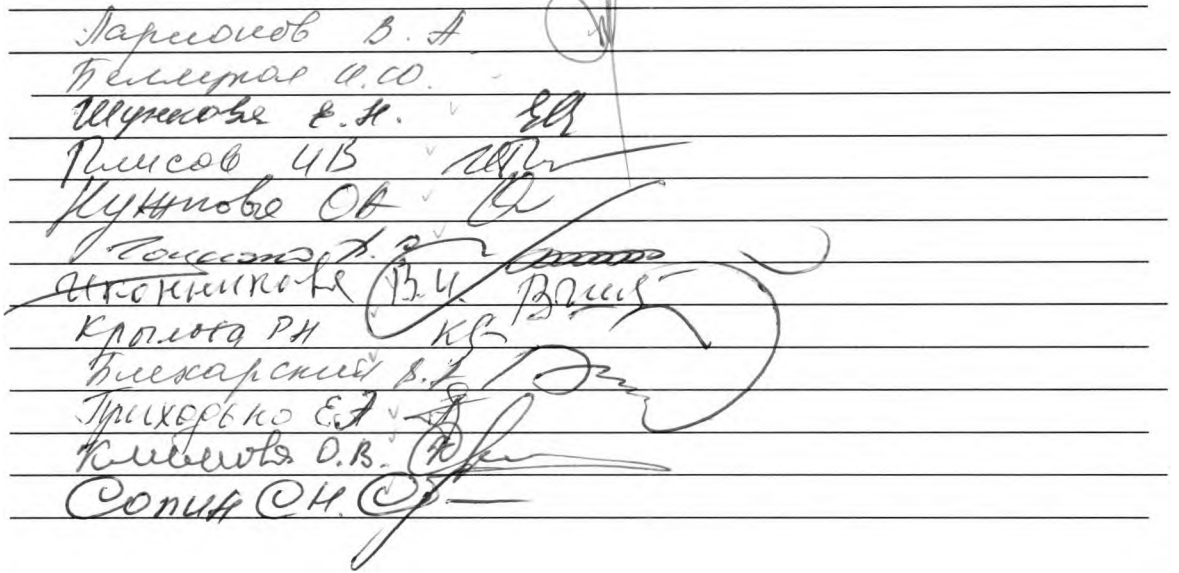 Ларионов В. А
И.Ю.
Шункова Е.Н.
Плисов ИВ
Нужнова ОА
Иконникова В.И.
Крылова РН
Блехарский В.А
Приходько Е.А
Климова О.В.
Сопин СН.